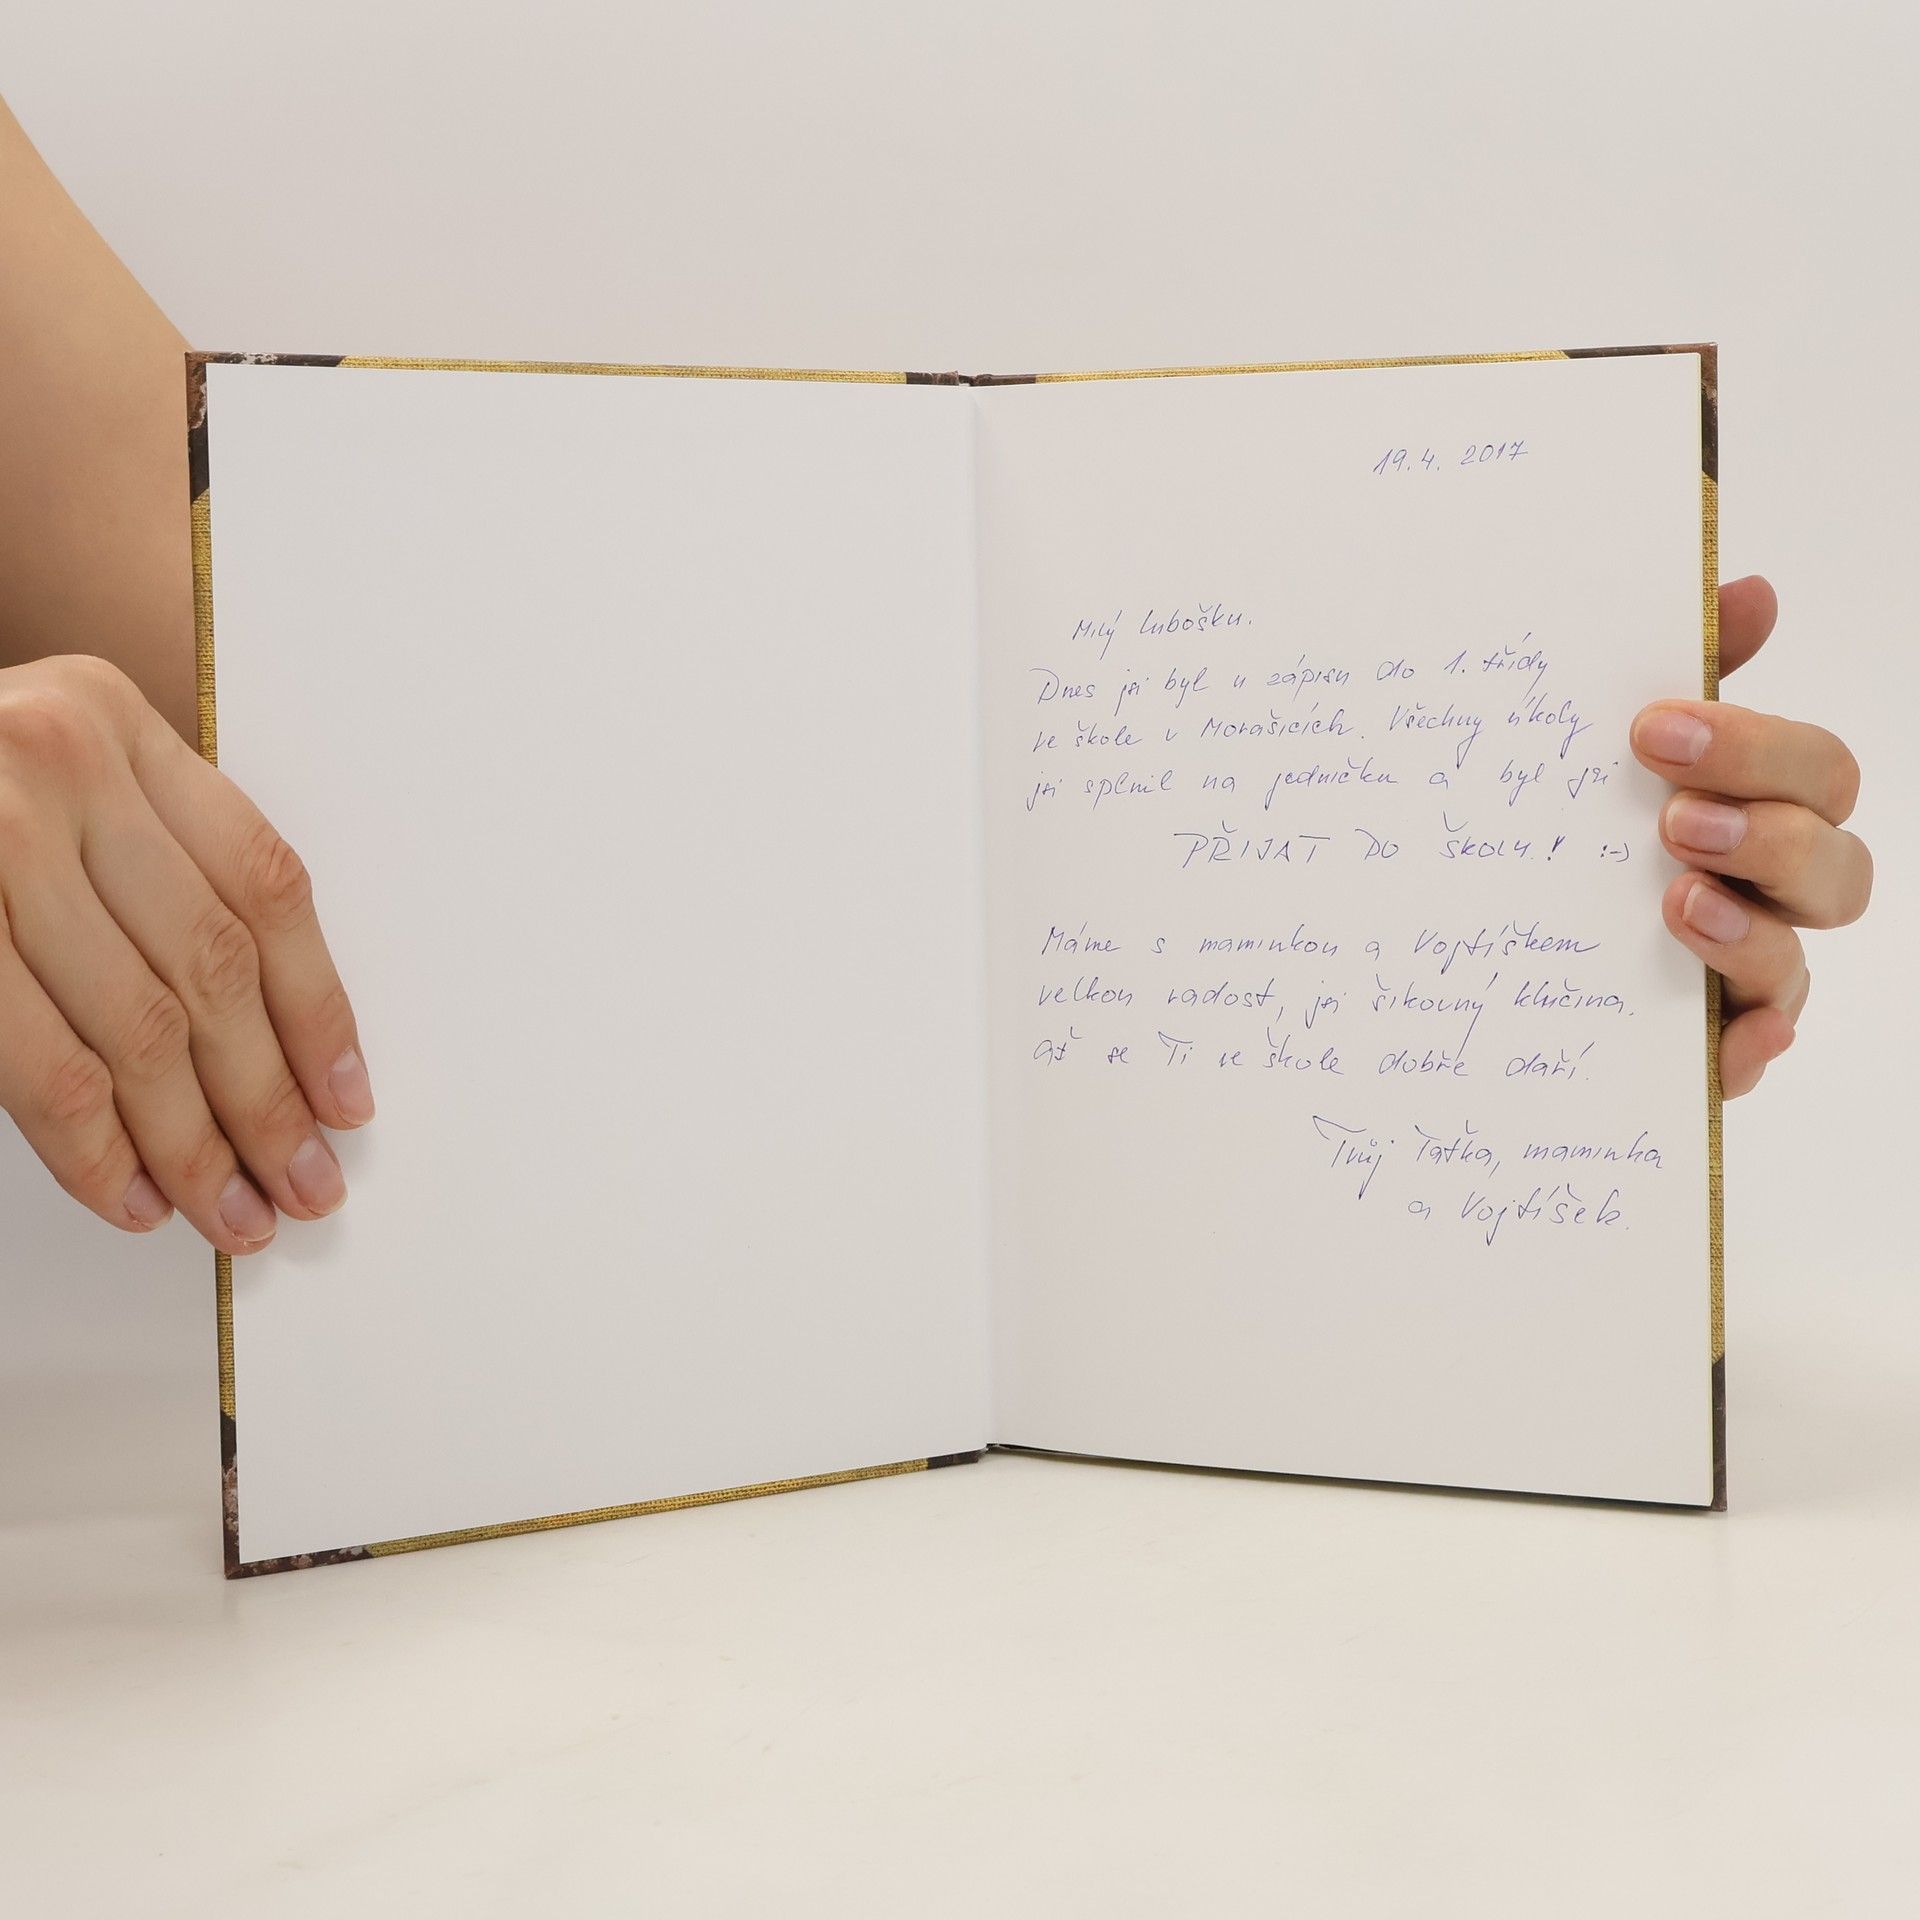 19.4. 2017
Milý Lubošku.
Dnes jsi byl u zápisu do 1. třídy
ve škole v Morašicích. Všechny úkoly
jsi splnil na jedničku a byl jsi
PŘIJAT DO ŠKOLY! :-)
Máme s maminkou a Vojtíškem
velkou radost, jsi šikovný klučina.
Ať se Ti ve škole dobře daří.
Tvůj Taťka, maminka
a Vojtíšek.